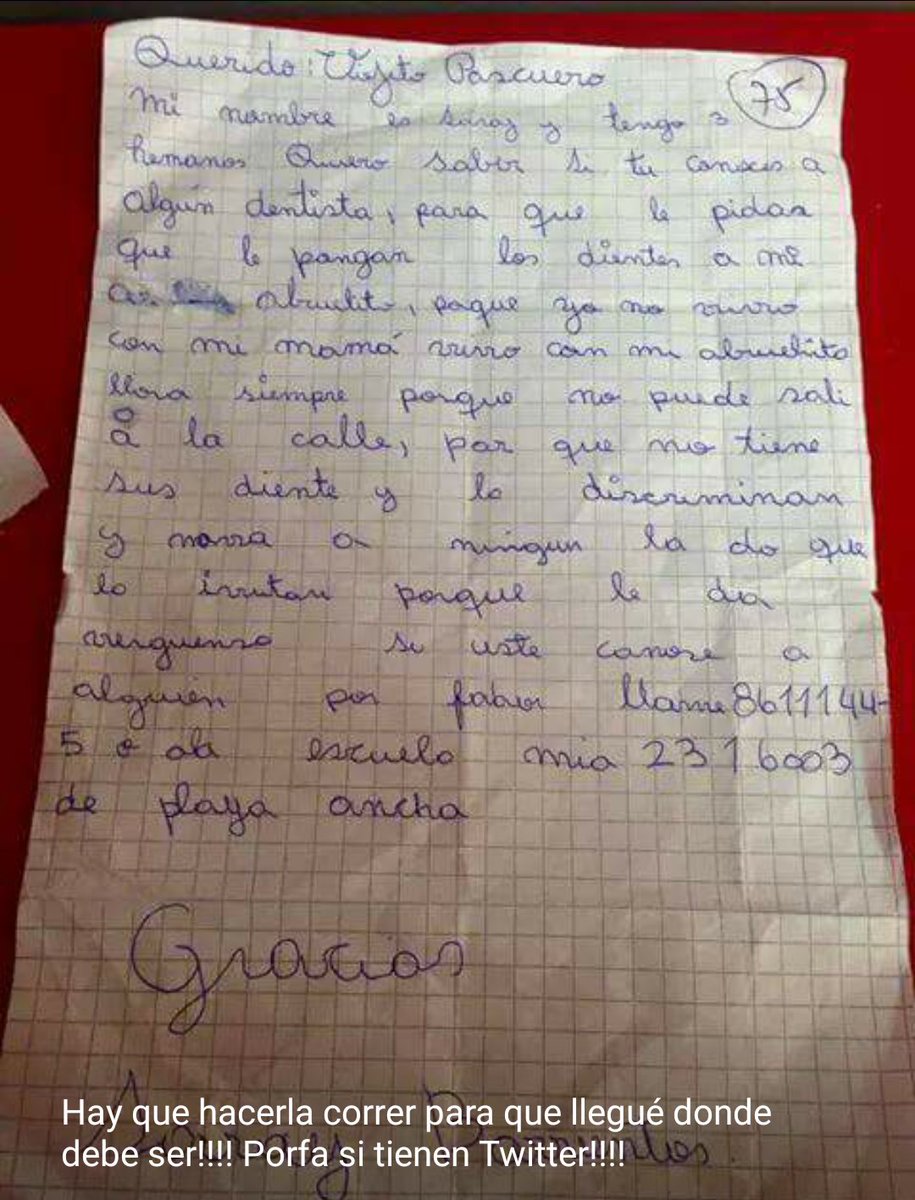 Querido: Viejito Pascuero
75
mi nambre es y tengo 3
hemanos Quiero saber si tu conoces a
Algún dentista, para que le pidas
que le pangan los dientes a mi
abuelito, paque ya no vivro
con mi mamá vivro con mi abuelito
llora siempre porque no puede sali
a la calle, por que no tiene
sus diente y lo discriminan
y nova a ningun la do que
lo invitan porque le da
verguenso si uste canose a
alguien por fabor llame 8611144-
5 o ala escuela mia 2316003
de playa ancha
Gracias
Hay que hacerla correr para que llegué donde
debe ser!!!! Porfa si tienen Twitter!!!!